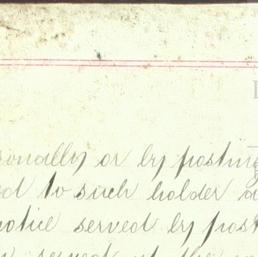 sonally or by posting
ed to such holder a
notice served by post
served